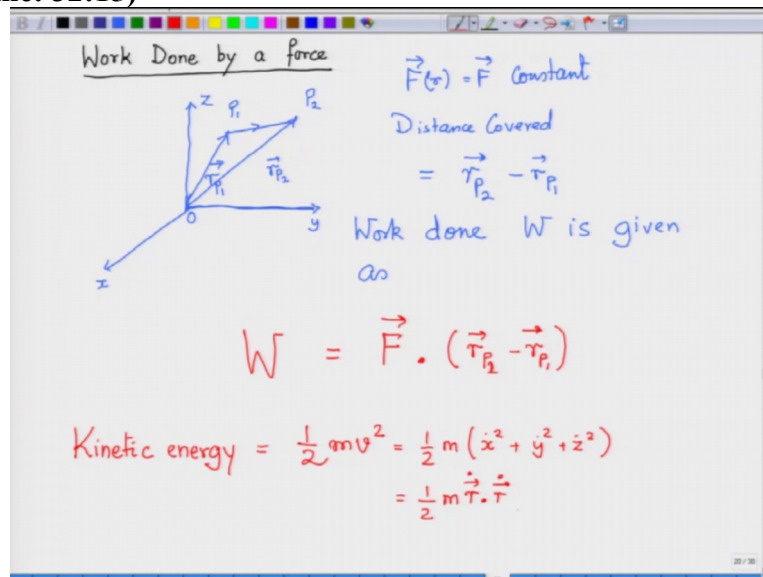 Work Done by a force
z
P₁
P₂
r⃗_P₁
r⃗_P₂
O
y
x
F⃗(r) = F⃗ Constant
Distance Covered
= r⃗_P₂ - r⃗_P₁
Work done W is given
as
W = F⃗ . (r⃗_P₂ - r⃗_P₁)
Kinetic energy = 1/2 mv² = 1/2 m (ẋ² + ẏ² + ż²)
= 1/2 m ṙ⃗ . ṙ⃗
20 / 30